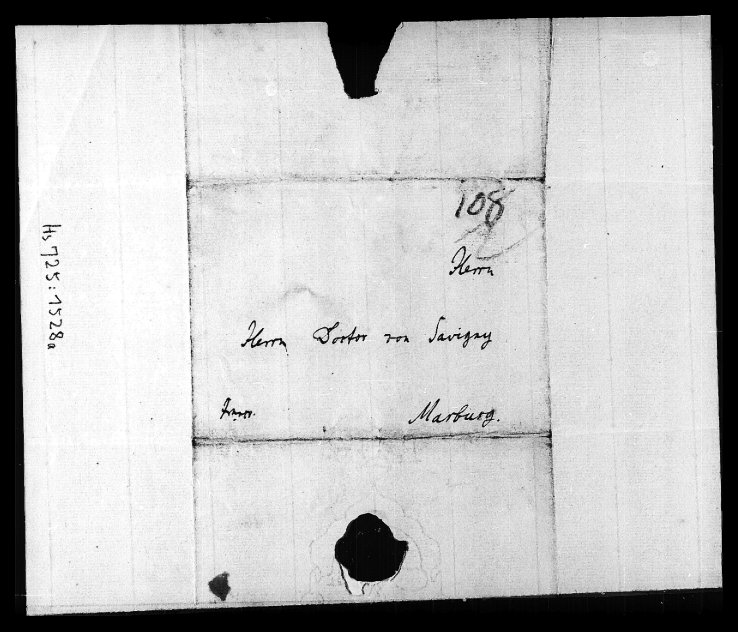 108
Herrn
Herrn Doctor von Savigny
franco.
Marburg.
Hs 725:1528a